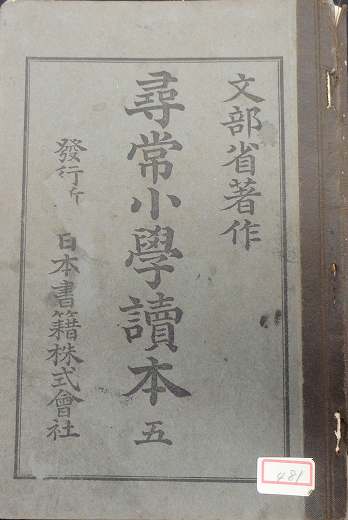 文部省著作
尋常小學讀本 五
發行所 日本書籍株式會社
481